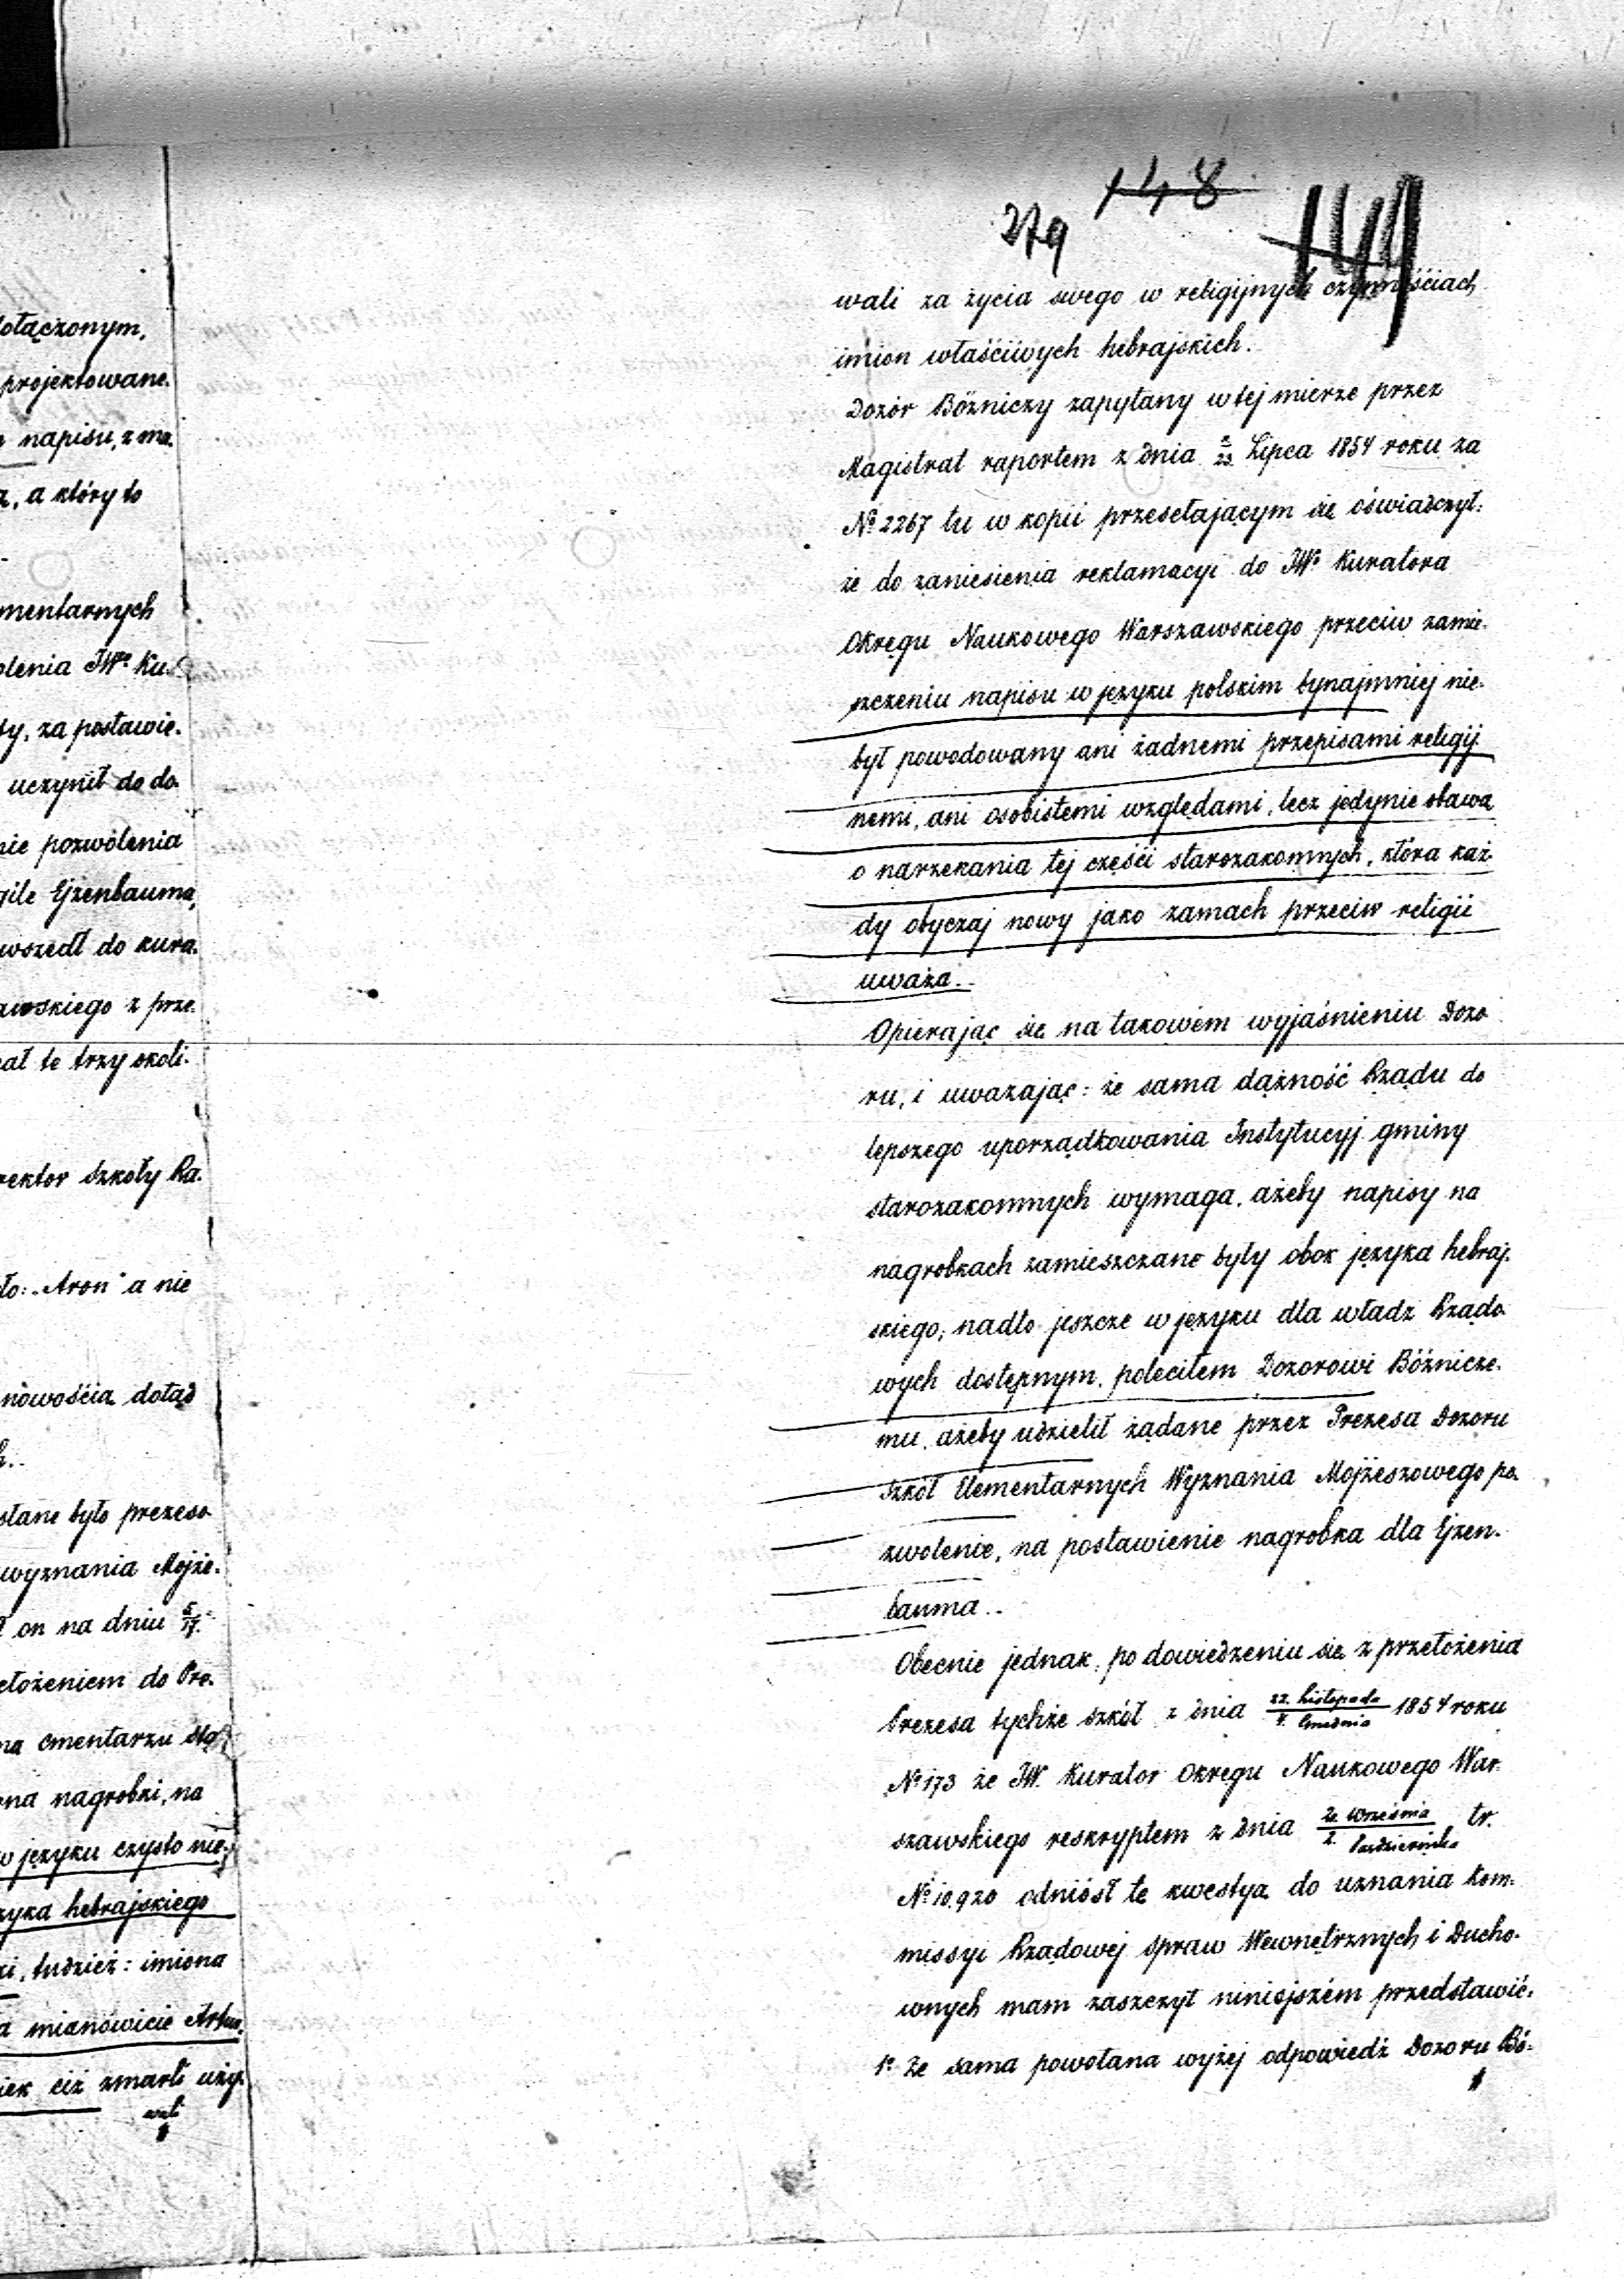 dołączonym,
projektowane.
napisu, z ma.
a, a który to
mentarnych
olenia JWgo Ku.
dy, za postawie.
uczynił do do.
nie pozwolenia
gile Ejzenbauma,
wszedł do kura.
awskiego z prze.
ał te trzy okoli.
rektor Szkoły Ra.
ło: „Aron" a nie
nowością dotąd
h..
słane było prezeso
wyznania Mojże.
ł on na dniu 5/17.
ełożeniem do Pre.
na cmentarzu sta
ona nagrobki, na
w języku czysto nie.
zyka hebrajskiego
ki, tudzież: imiona
a mianowicie Artur.
iek ciż zmarli uży.
wali
148
279
149
wali za życia swego w religijnych czynnościach
imion właściwych hebrajskich.
Dozór Bóżniczy zapytany w tej mierze przez
Magistrat raportem z dnia /23 Lipca 1854 roku za
No 2267 tu w kopii przesełającym się oświadczył:
że do zaniesienia reklamacyi do JWo Kuratora
Okręgu Naukowego Warszawskiego przeciw zamie.
szczeniu napisu w języku polskim bynajmniej nie.
był powodowany ani żadnemi przepisami religij.
nemi, ani osobistemi względami, lecz jedynie obawą
o narzekania tej części starozakonnych, która każ.
dy obyczaj nowy jako zamach przeciw religii
uważa..
Opierając się na takowem wyjaśnieniu Dozo
ru, i uważając: że sama dążność Rządu do
lepszego uporządkowania Instytucyj gminy
starozakonnych wymaga, ażeby napisy na
nagrobkach zamieszczane były obok języka hebraj.
skiego, nadto jeszcze w języku dla władz Rządo
wych dostępnym, poleciłem Dozorowi Bóźnicze.
mu, ażeby udzielił żądane przez Prezesa Dozoru
Szkół Elementarnych Wyznania Mojżeszowego po.
zwolenie, na postawienie nagrobka dla Ejzen.
bauma..
Obecnie jednak, po dowiedzeniu się z przełożenia
Prezesa tychże szkół z dnia 22. Listopada/4. Grudnia 1854 roku
No 173 że JW. Kurator Okręgu Naukowego War.
szawskiego reskryptem z dnia 20 Września/2. Października tr.
No 10,920 odniósł tę kwestyą do uznania Kom.
missyi Rządowej Spraw Wewnętrznych i Ducho.
wnych mam zaszczyt niniejszém przedstawić.
1o Że sama powołana wyżej odpowiedź Dozoru Bó.